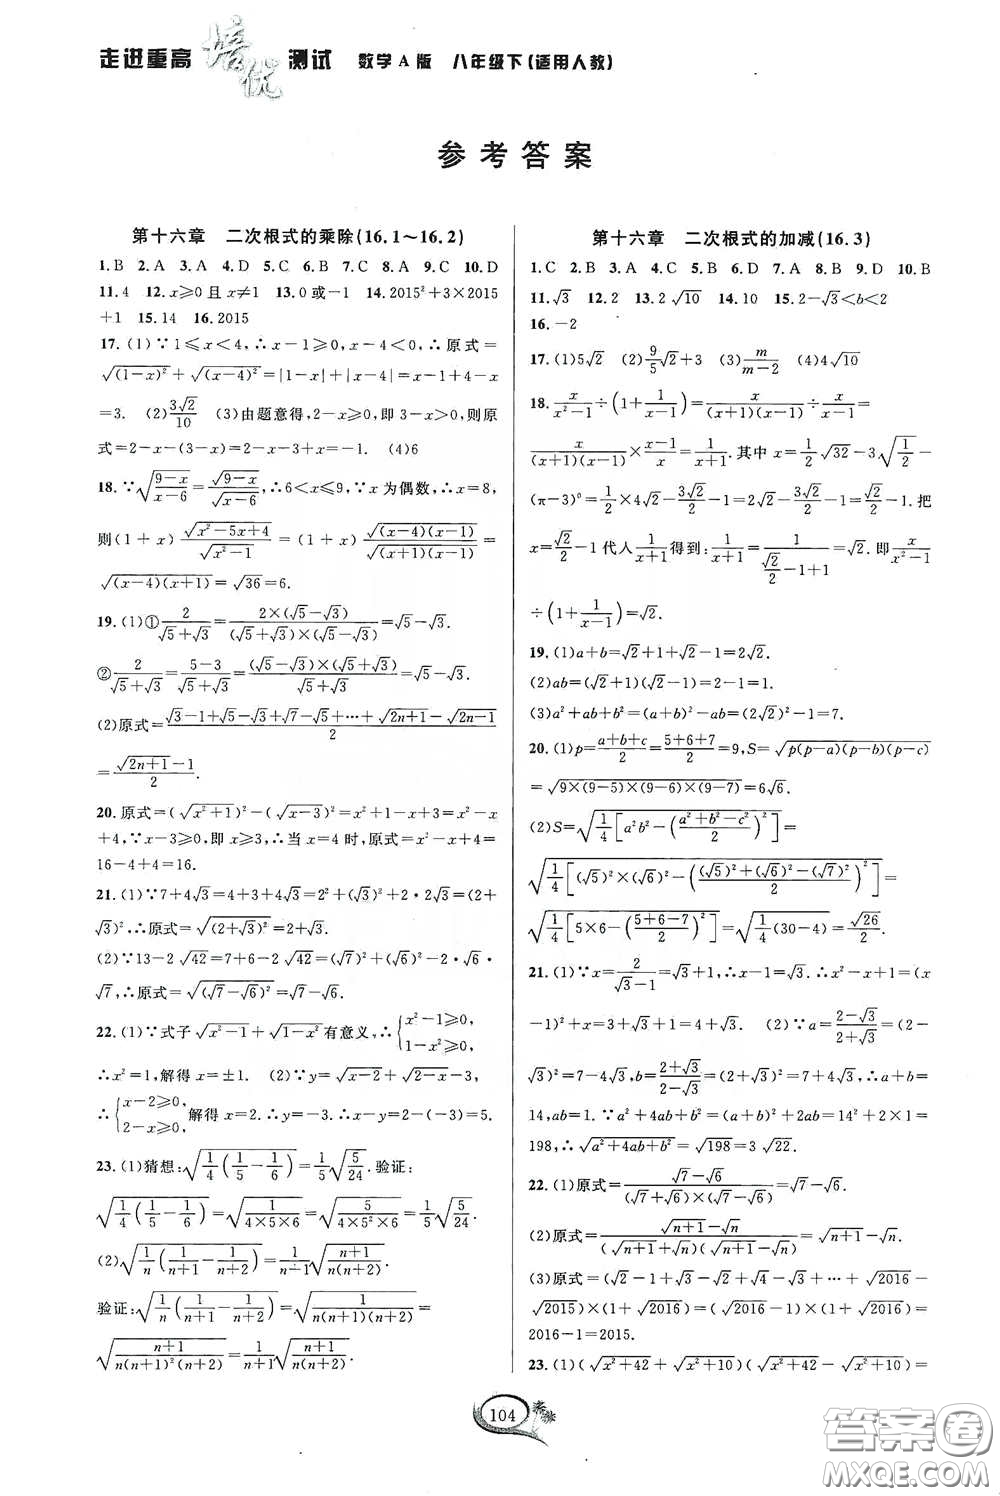 走进重高 培优 测试 数学 A 版 八年级下(适用人教)
参考答案
第十六章 二次根式的乘除(16.1～16.2)
1.B 2.A 3.A 4.D 5.C 6.B 7.C 8.A 9.C 10.D
11.4 12.x≥0 且 x≠1 13.0 或-1 14.2015²+3×2015
+1 15.14 16.2015
17.(1)∵1≤x<4,∴x-1≥0,x-4<0,∴原式=
√((1-x)²)+√((x-4)²)=|1-x|+|x-4|=x-1+4-x
=3. (2)3√2/10 (3)由题意得,2-x≥0,即 3-x>0,则原
式=2-x-(3-x)=2-x-3+x=-1. (4)6
18.∵√((9-x)/(x-6))=√(9-x)/√(x-6),∴6<x≤9,∵x 为偶数,∴x=8,
则(1+x)√(x²-5x+4)/√(x²-1)=(1+x)√((x-4)(x-1))/√((x+1)(x-1))=
√((x-4)(x+1))=√36=6.
19.(1)①2/(√5+√3)=2×(√5-√3)/((√5+√3)×(√5-√3))=√5-√3.
②2/(√5+√3)=(5-3)/(√5+√3)=(√5-√3)×(√5+√3)/(√5+√3)=√5-√3.
(2)原式=(√3-1+√5-√3+√7-√5+…+√(2n+1)-√(2n-1))/2
=(√(2n+1)-1)/2.
20.原式=(√(x²+1))²-(√(x-3))²=x²+1-x+3=x²-x
+4,∵x-3≥0,即 x≥3,∴当 x=4 时,原式=x²-x+4=
16-4+4=16.
21.(1)∵7+4√3=4+3+4√3=2²+(√3)²+2·2√3=(2+
√3)²,∴原式=√((2+√3)²)=2+√3.
(2)∵13-2√42=7+6-2√42=(√7)²+(√6)²-2·√6·
√7,∴原式=√((√7-√6)²)=√7-√6.
22.(1)∵式子√(x²-1)+√(1-x²)有意义,∴{x²-1≥0, 1-x²≥0,
∴x²=1,解得 x=±1. (2)∵y=√(x-2)+√(2-x)-3,
∴{x-2≥0, 2-x≥0, 解得 x=2.∴y=-3.∴x-y=2-(-3)=5.
23.(1)猜想:√(1/4(1/5-1/6))=1/5√(5/24).验证:
√(1/4(1/5-1/6))=√(1/(4×5×6))=√(5/(4×5²×6))=1/5√(5/24).
(2)√(1/n(1/(n+1)-1/(n+2)))=1/(n+1)√((n+1)/(n(n+2))).
验证:√(1/n(1/(n+1)-1/(n+2)))=√(1/(n(n+1)(n+2)))=
√((n+1)/(n(n+1)²(n+2)))=1/(n+1)√((n+1)/(n(n+2))).
第十六章 二次根式的加减(16.3)
1.C 2.B 3.C 4.D 5.C 6.A 7.C 8.D 9.D 10.B
11.√3 12.2 13.2√10 14.10 15.2-√3<b<2
16.-2
17.(1)5√2 (2)9/5√2+3 (3)m/(m-2) (4)4√10
18.x/(x²-1)÷(1+1/(x-1))=x/((x+1)(x-1))÷x/(x-1)=
x/((x+1)(x-1))×(x-1)/x=1/(x+1).其中 x=1/2√32-3√(1/2)-
(π-3)⁰=1/2×4√2-3√2/2-1=2√2-3√2/2-1=√2/2-1.把
x=√2/2-1 代人1/(x+1)得到:1/(x+1)=1/(√2/2-1+1)=√2.即x/(x²-1)
÷(1+1/(x-1))=√2.
19.(1)a+b=√2+1+√2-1=2√2.
(2)ab=(√2+1)(√2-1)=2-1=1.
(3)a²+ab+b²=(a+b)²-ab=(2√2)²-1=7.
20.(1)p=(a+b+c)/2=(5+6+7)/2=9,S=√(p(p-a)(p-b)(p-c))
=√(9×(9-5)×(9-6)×(9-7))=6√6.
(2)S=√(1/4[a²b²-((a²+b²-c²)/2)²])=
√(1/4[(√5)²×(√6)²-(((√5)²+(√6)²-(√7)²)/2)²])=
√(1/4[5×6-((5+6-7)/2)²])=√(1/4(30-4))=√26/2.
21.(1)∵x=2/(√3-1)=√3+1,∴x-1=√3,∴x²-2x+1=(x
-1)²+x=3+√3+1=4+√3. (2)∵a=(2-√3)/(2+√3)=(2-
√3)²=7-4√3,b=(2+√3)/(2-√3)=(2+√3)²=7+4√3.∴a+b=
14,ab=1.∵a²+4ab+b²=(a+b)²+2ab=14²+2×1=
198,∴√(a²+4ab+b²)=√198=3√22.
22.(1)原式=(√7-√6)/((√7+√6)×(√7-√6))=√7-√6.
(2)原式=(√(n+1)-√n)/((√(n+1)+√n)(√(n+1)-√n))=√(n+1)-√n.
(3)原式=(√2-1+√3-√2+√4-√3+…+√2016-
√2015)×(1+√2016)=(√2016-1)×(1+√2016)=
2016-1=2015.
23.(1)(√(x²+42)+√(x²+10))(√(x²+42)-√(x²+10))=
104
答案卷
MXQE.COM